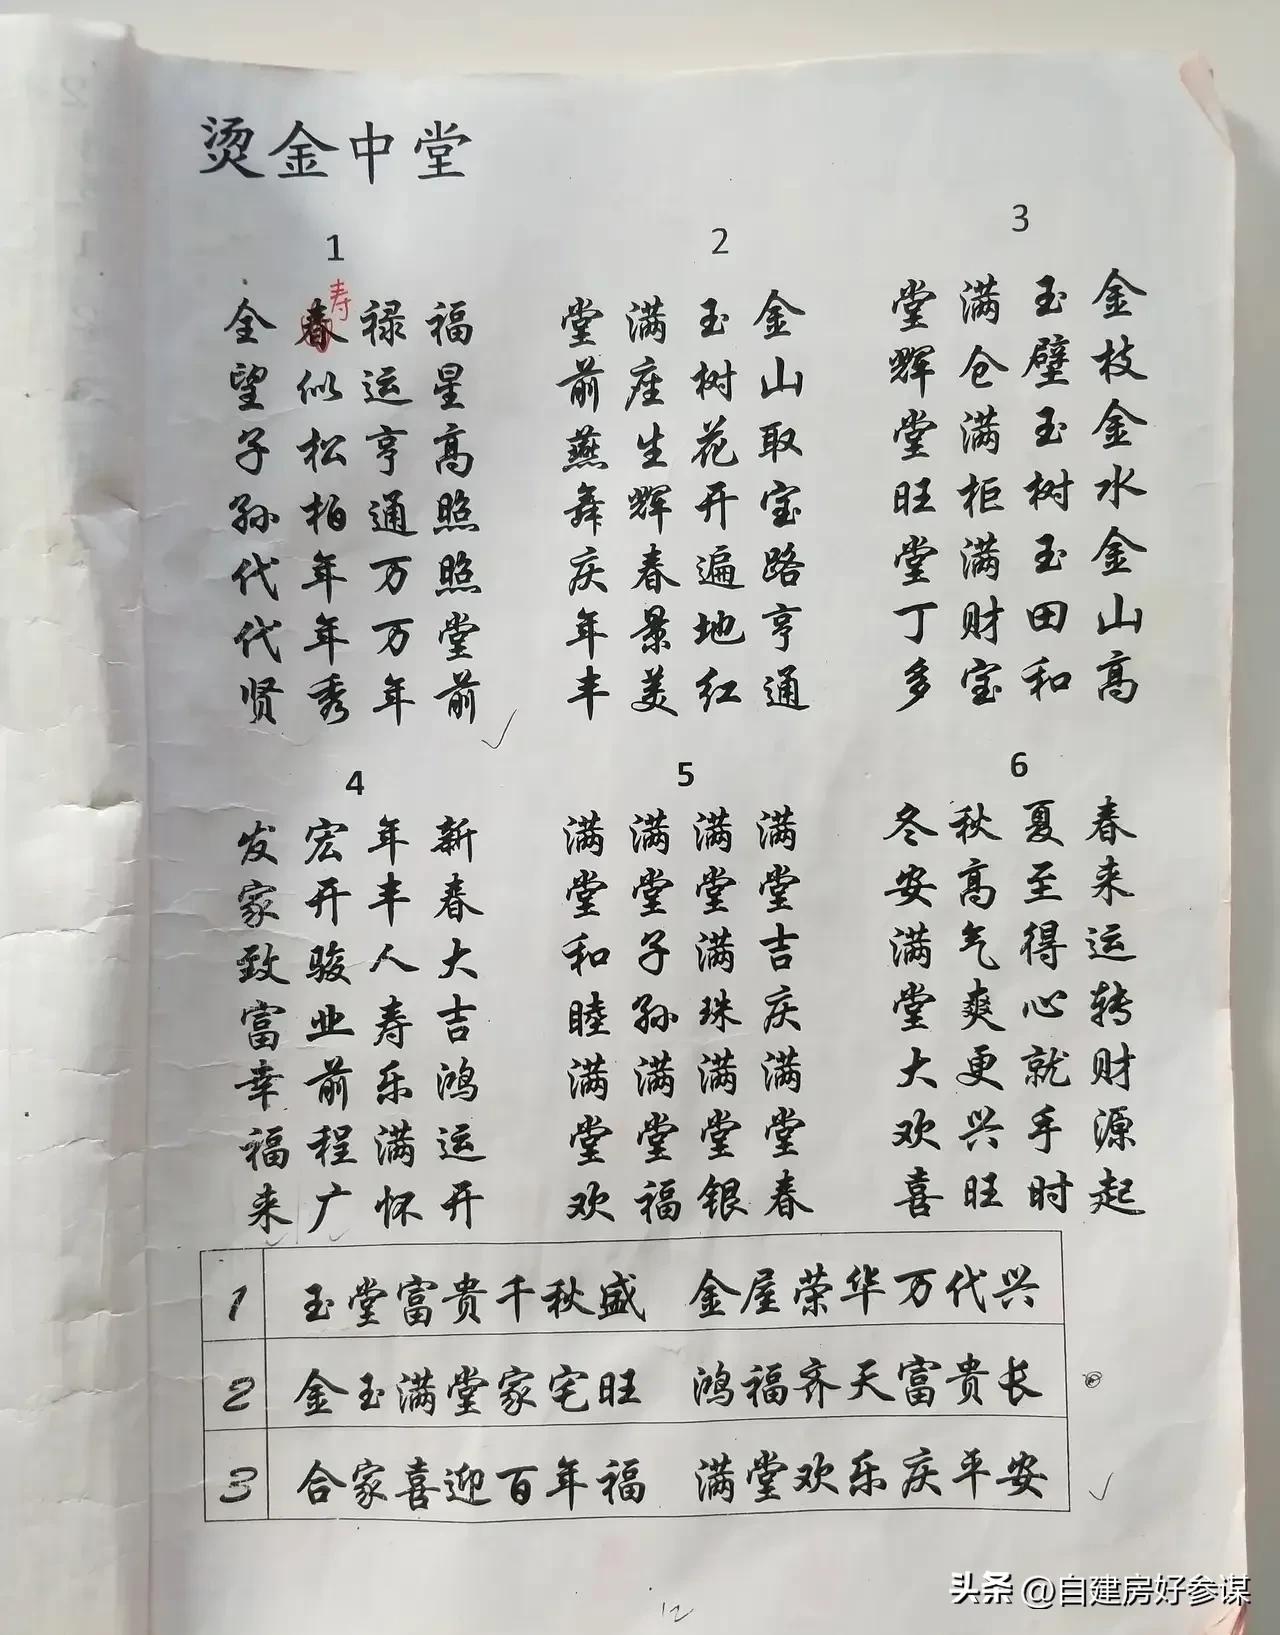 烫金中堂
1
福星高照照堂前
禄运亨通万万年
寿
春似松柏年年秀
全望子孙代代贤
2
金山取宝路亨通
玉树花开遍地红
满座生辉春景美
堂前燕舞庆年丰
3
金枝金水金山高
玉璧玉树玉田和
满仓满柜满财宝
堂辉堂旺堂丁多
4
新春大吉鸿运开
年丰人寿乐满怀
宏开骏业前程广
发家致富幸福来
5
满堂吉庆满堂春
满堂满珠满堂银
满堂子孙满堂福
满堂和睦满堂欢
6
春来运转财源起
夏至得心就手时
秋高气爽更兴旺
冬安满堂大欢喜
1 玉堂富贵千秋盛 金屋荣华万代兴
2 金玉满堂家宅旺 鸿福齐天富贵长
3 合家喜迎百年福 满堂欢乐庆平安
12
头条 @自建房好参谋